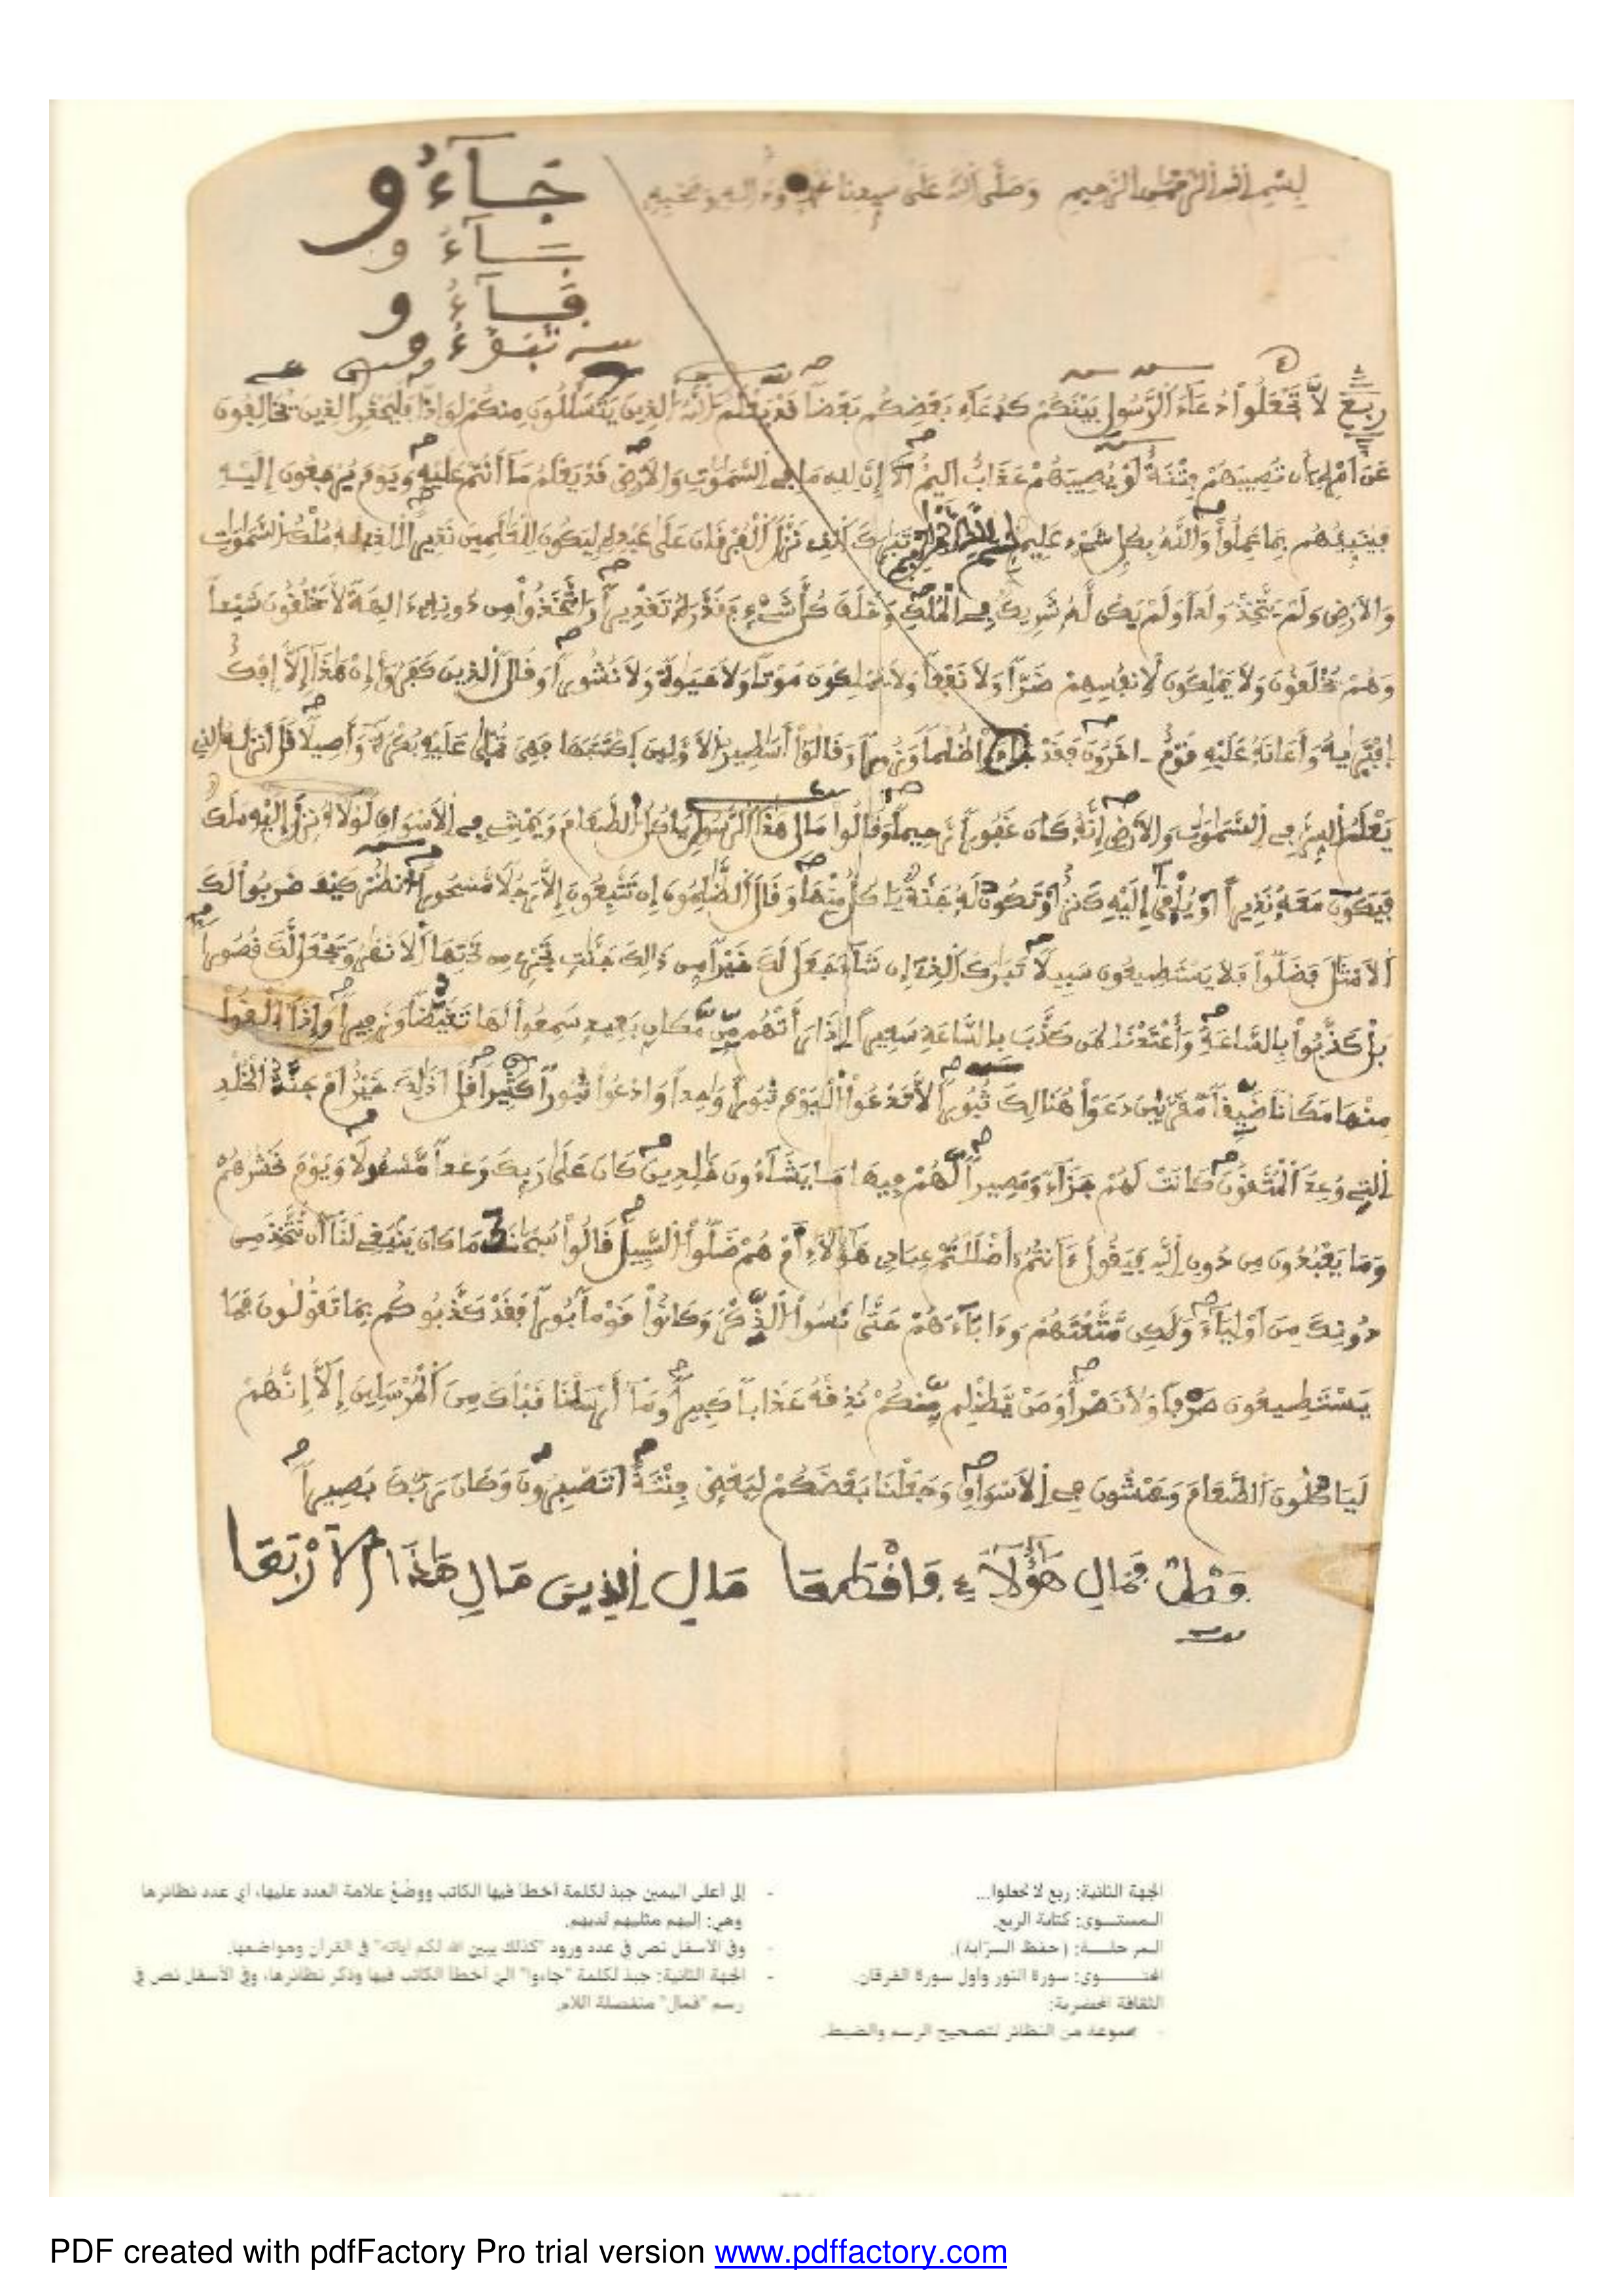 بِسْمِ اللهِ الرَّحْمٰنِ الرَّحِيمِ وَصَلَّى اللهُ عَلَى سيدنا محمد وءاله وصحبه
جَآءُو
بَآءُو
فَآءُو
تَبَوَّءُو
ربع لَّا تَجْعَلُوا۟ دُعَآءَ الرَّسُولِ بَيْنَكُمْ كَدُعَآءِ بَعْضِكُم بَعْضًا قَدْ يَعْلَمُ اللَّهُ الذِينَ يَتَسَلَّلُونَ مِنكُمْ لِوَاذًا فَلْيَحْذَرِ الذِينَ يُخَالِفُونَ
عَنَ امْرِهِ أَن تُصِيبَهُمْ فِتْنَةٌ اَوْ يُصِيبَهُمْ عَذَابٌ اَلِيمٌ اَلَا إِنَّ لِلهِ مَا فِي السَّمَٰوَٰتِ وَالَارْضِ قَدْ يَعْلَمُ مَا أَنتُمْ عَلَيْهِ وَيَوْمَ يُرْجَعُونَ إِلَيْهِ
فَيُنَبِّئُهُم بِمَا عَمِلُوا۟ وَاللَّهُ بِكُلِّ شَيْءٍ عَلِيمٌ تَبَٰرَكَ الذِي نَزَّلَ الْفُرْقَانَ عَلَىٰ عَبْدِهِ لِيَكُونَ لِلْعَٰلَمِينَ نَذِيرًا الذِي لَهُ مُلْكُ السَّمَٰوَٰتِ
وَالَارْضِ وَلَمْ يَتَّخِذْ وَلَدًا وَلَمْ يَكُن لَّهُ شَرِيكٌ فِي الْمُلْكِ وَخَلَقَ كُلَّ شَيْءٍ فَقَدَّرَهُ تَقْدِيرًا وَاتَّخَذُوا۟ مِن دُونِهِ ءَالِهَةً لَّا يَخْلُقُونَ شَيْـًٔا
وَهُمْ يُخْلَقُونَ وَلَا يَمْلِكُونَ لِأَنفُسِهِمْ ضَرًّا وَلَا نَفْعًا وَلَا يَمْلِكُونَ مَوْتًا وَلَا حَيَوٰةً وَلَا نُشُورًا وَقَالَ الذِينَ كَفَرُوا۟ إِنْ هَٰذَا إِلَّا إِفْكٌ
اِفْتَرَيٰهُ وَأَعَانَهُ عَلَيْهِ قَوْمٌ ـ اخَرُونَ فَقَدْ جَآءُو ظُلْمًا وَزُورًا وَقَالُوا۟ أَسَٰطِيرُ الَاوَّلِينَ اَكْتَتَبَهَا فَهِيَ تُمْلَىٰ عَلَيْهِ بُكْرَةً وَأَصِيلًا قُلَ انزَلَهُ الذِي
يَعْلَمُ السِّرَّ فِي السَّمَٰوَٰتِ وَالَارْضِ إِنَّهُ كَانَ غَفُورًا رَّحِيمًا وَقَالُوا۟ مَالِ هَٰذَا الرَّسُولِ يَاكُلُ الطَّعَامَ وَيَمْشِي فِي الَاسْوَاقِ لَوْلَا أُنزِلَ إِلَيْهِ مَلَكٌ
فَيَكُونَ مَعَهُ نَذِيرًا اَوْ يُلْقَىٰ إِلَيْهِ كَنزٌ اَوْ تَكُونُ لَهُ جَنَّةٌ يَاكُلُ مِنْهَا وَقَالَ الظَّٰلِمُونَ إِن تَتَّبِعُونَ إِلَّا رَجُلًا مَّسْحُورًا اَنظُرْ كَيْفَ ضَرَبُوا۟ لَكَ
الَامْثَٰلَ فَضَلُّوا۟ فَلَا يَسْتَطِيعُونَ سَبِيلًا تَبَٰرَكَ الذِي إِن شَآءَ جَعَلَ لَكَ خَيْرًا مِّن ذَٰلِكَ جَنَّٰتٍ تَجْرِي مِن تَحْتِهَا الَانْهَٰرُ وَيَجْعَل لَّكَ قُصُورًا
بَلْ كَذَّبُوا۟ بِالسَّاعَةِ وَأَعْتَدْنَا لِمَن كَذَّبَ بِالسَّاعَةِ سَعِيرًا اِذَا رَأَتْهُم مِّن مَّكَانٍ بَعِيدٍ سَمِعُوا۟ لَهَا تَغَيُّظًا وَزَفِيرًا وَإِذَا أُلْقُوا۟
مِنْهَا مَكَانًا ضَيِّقًا مُّقَرَّنِينَ دَعَوْا۟ هُنَالِكَ ثُبُورًا لَّا تَدْعُوا۟ الْيَوْمَ ثُبُورًا وَٰحِدًا وَادْعُوا۟ ثُبُورًا كَثِيرًا قُلَ اَذَٰلِكَ خَيْرٌ اَمْ جَنَّةُ الْخُلْدِ
التِي وُعِدَ الْمُتَّقُونَ كَانَتْ لَهُمْ جَزَآءً وَمَصِيرًا لَّهُمْ فِيهَا مَا يَشَآءُونَ خَٰلِدِينَ كَانَ عَلَىٰ رَبِّكَ وَعْدًا مَّسْـُٔولًا وَيَوْمَ نَحْشُرُهُمْ
وَمَا يَعْبُدُونَ مِن دُونِ اللَّهِ فَيَقُولُ ءَآنتُمُ أَضْلَلْتُمْ عِبَادِي هَٰؤُلَآءِ أَمْ هُمْ ضَلُّوا۟ السَّبِيلَ قَالُوا۟ سُبْحَٰنَكَ مَا كَانَ يَنۢبَغِي لَنَا أَن نَّتَّخِذَ مِن
دُونِكَ مِنَ اَوْلِيَآءَ وَلَٰكِن مَّتَّعْتَهُمْ وَءَابَآءَهُمْ حَتَّىٰ نَسُوا۟ الذِّكْرَ وَكَانُوا۟ قَوْمًا بُورًا فَقَدْ كَذَّبُوكُم بِمَا تَقُولُونَ فَمَا
يَسْتَطِيعُونَ صَرْفًا وَلَا نَصْرًا وَمَنْ يَّظْلِم مِّنكُمْ نُذِقْهُ عَذَابًا كَبِيرًا وَمَا أَرْسَلْنَا قَبْلَكَ مِنَ الْمُرْسَلِينَ إِلَّا إِنَّهُمْ
لَيَاكُلُونَ الطَّعَامَ وَيَمْشُونَ فِي الَاسْوَاقِ وَجَعَلْنَا بَعْضَكُمْ لِبَعْضٍ فِتْنَةً اَتَصْبِرُونَ وَكَانَ رَبُّكَ بَصِيرًا
فَمَالِ هَٰؤُلَآءِ فَاقْطَعَا مَالِ الذِينَ مَالِ هَٰذَا الَارْبَعَا
الجهة الثانية: ربع لا تجعلوا...
المستوى: كتابة الربع.
المرحلة: (حفظ السرّابة).
المحتوى: سورة النور وأول سورة الفرقان.
الثقافة الحضرية:
- مجموعة من النظائر لتصحيح الرسم والضبط.
- إلى أعلى اليمين جبذ لكلمة أخطأ فيها الكاتب ووضْعُ علامة العدد عليها، أي عدد نظائرها
وهي: إليهم مثليهم لديهم.
- وفي الأسفل نص في عدد ورود "كذلك يبين الله لكم آياته" في القرآن ومواضعها.
- الجهة الثانية: جبذ لكلمة "جاءوا" التي أخطأ الكاتب فيها وذكر نظائرها، وفي الأسفل نص في
رسم "فمال" منفصلة اللام.
PDF created with pdfFactory Pro trial version www.pdffactory.com